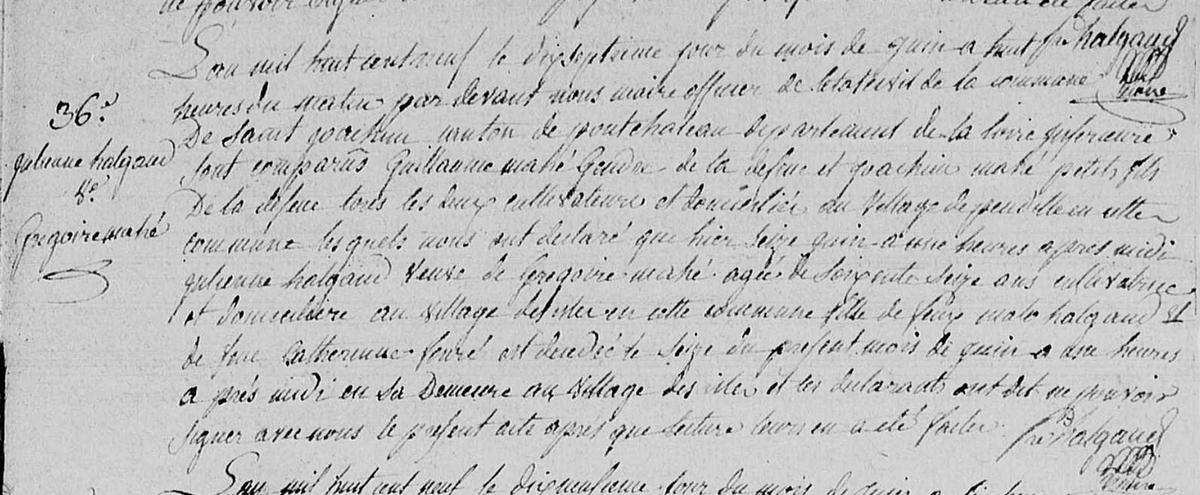 de pouvoir signer
L'an mil huit cent neuf le dix septieme jour du mois de juin a huit fr halgand
maire
heures du matin par devant nous maire officier de l'etat civil de la commune
36.e
De Saint joachim canton de pontchateau departement de la loire inferieure
julienne halgand
sont comparus Guillaume mahé Gendre de la defunte et joachim mahé petit fils
Ve.
De la defunte tous les deux cultivateurs et domiciliés du village de pendille en cette
Gregoire mahé
commune lesquels nous ont declaré que hier seize juin a une heures apres midi
julienne halgand veuve de Gregoire mahé agée de soixante seize ans cultivatrice
et domiciliée au village des iles en cette commune fille de feux malo halgand et
de feue Catherinne fouré est decedée le seize du present mois de juin a une heures
a près midi en sa Demeure au village des iles et les declarants ont dit ne pouvoir
signer avec nous le present acte apres que lecture leurs en a eté faitte. fr halgand
maire
L'an mil huit cent neuf le dix jour du mois de juin a